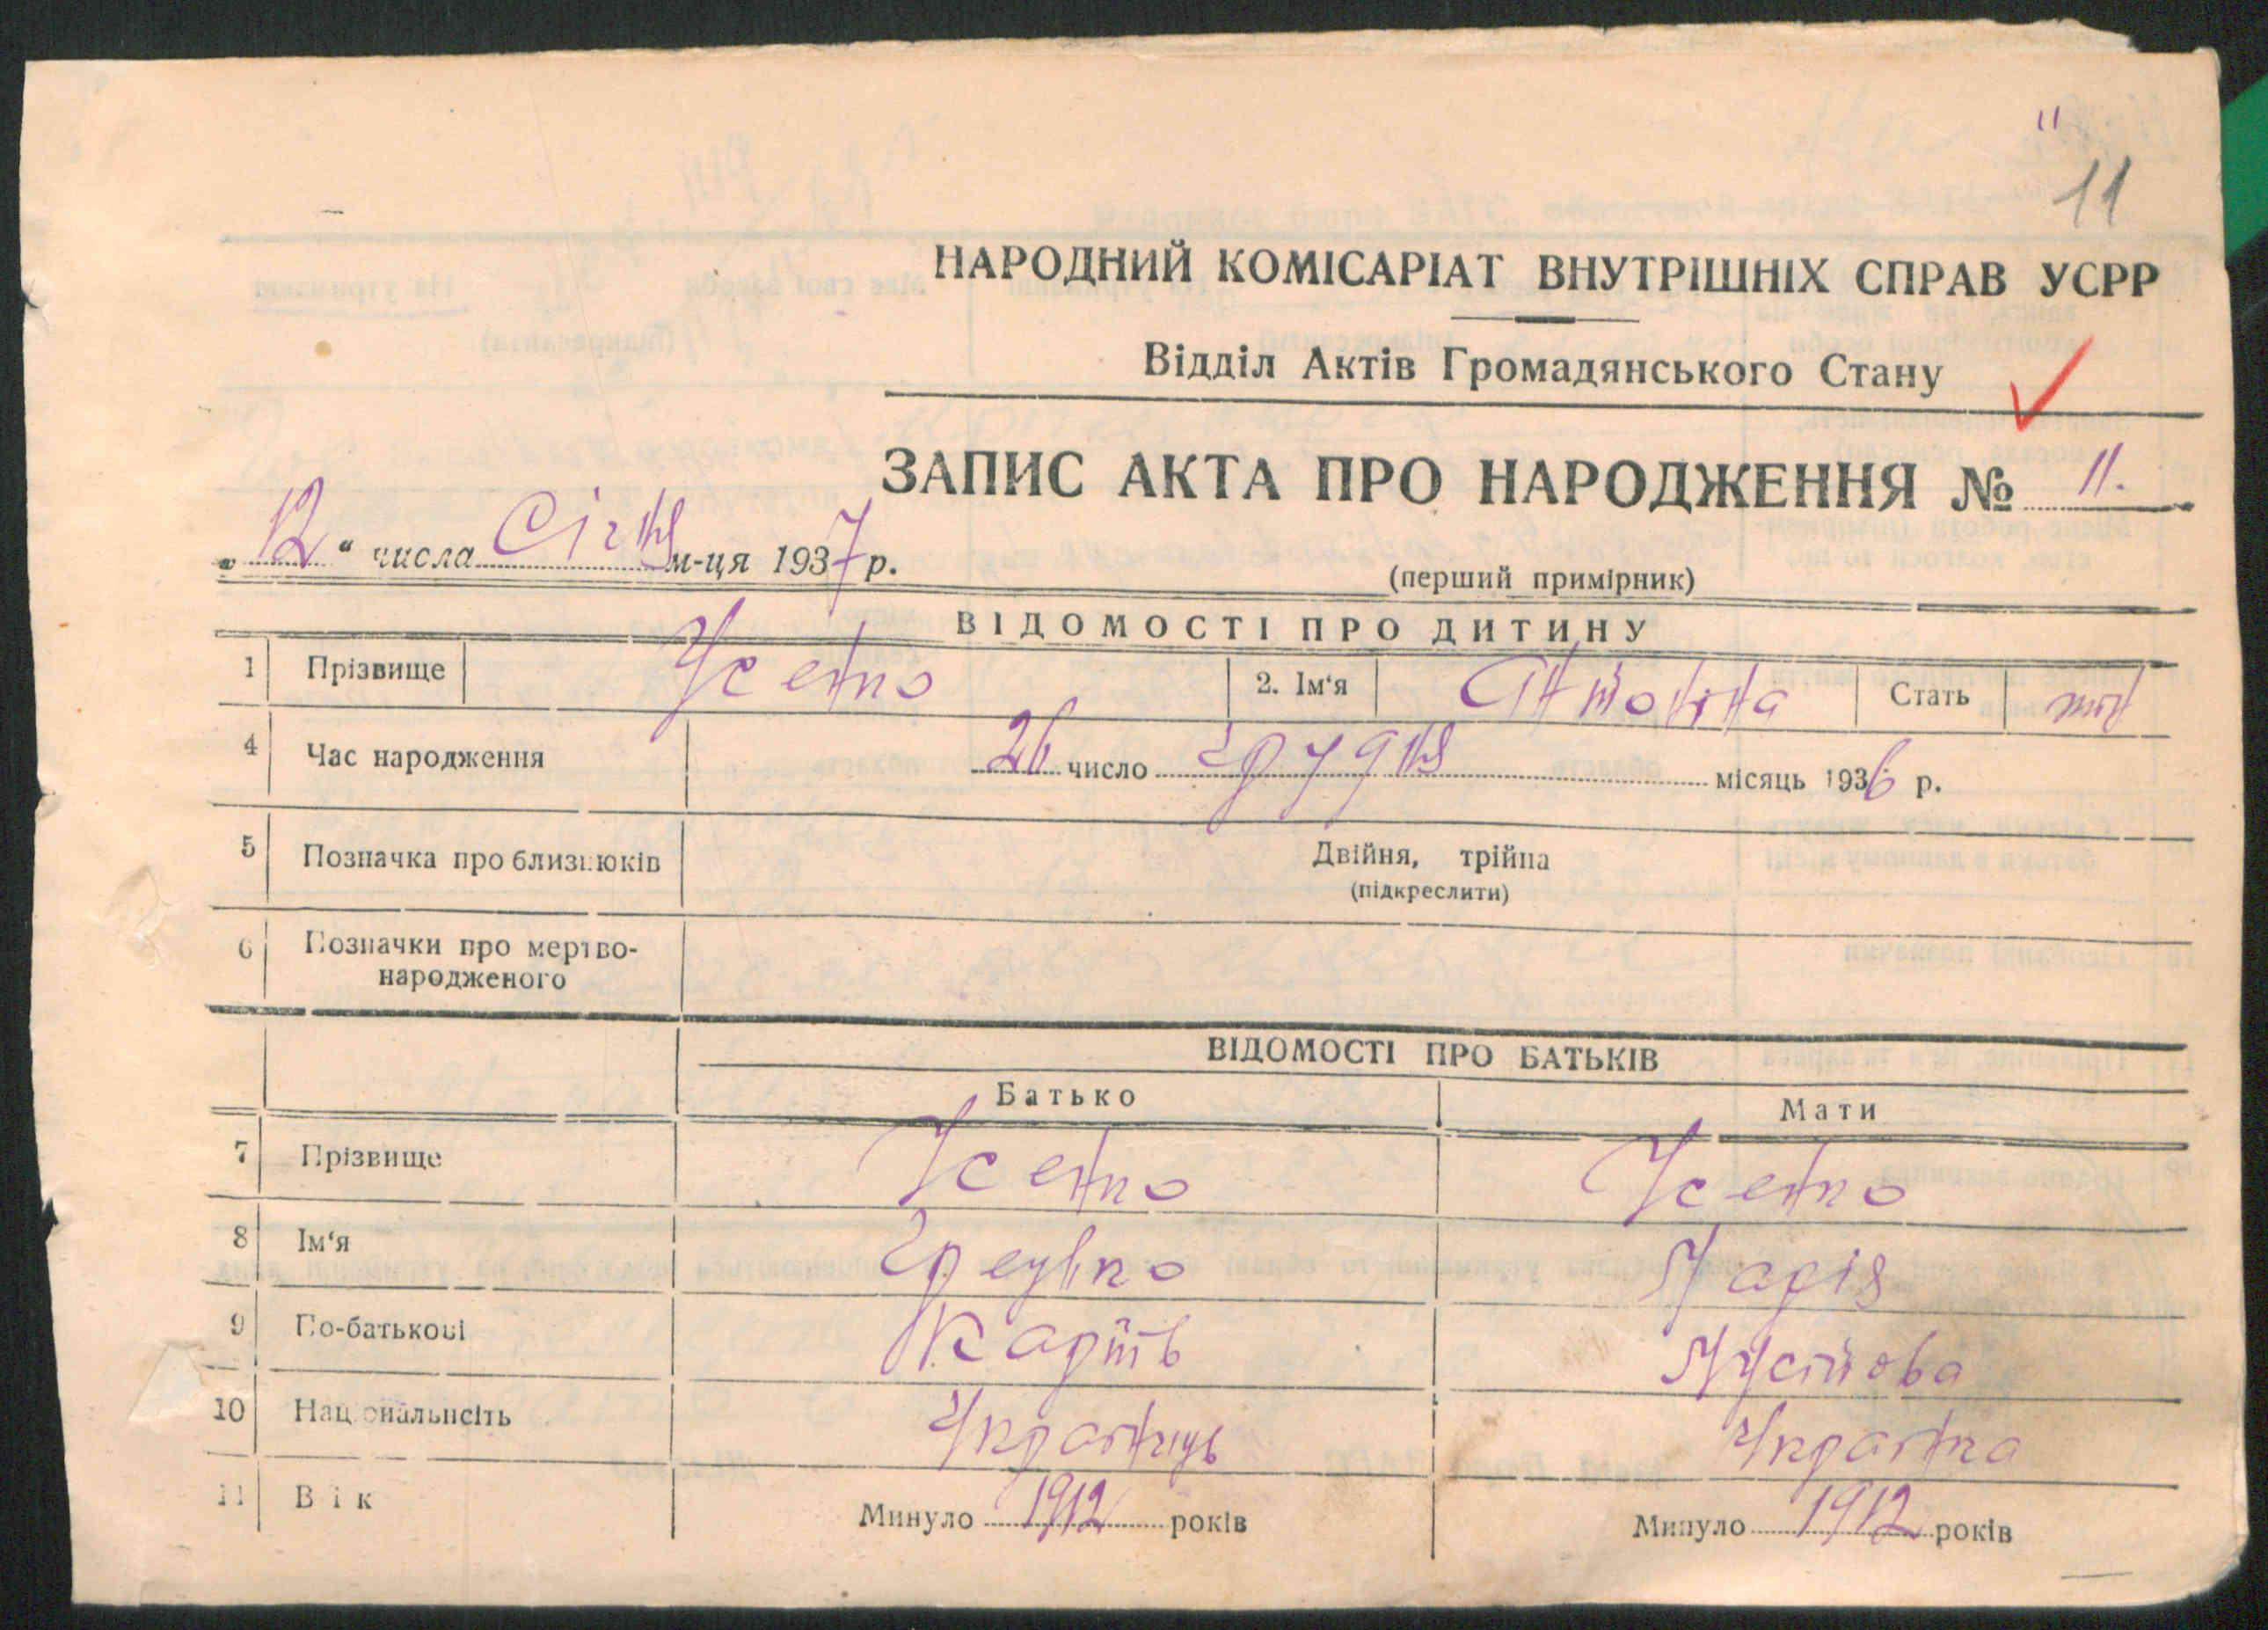 11
11
НАРОДНИЙ КОМІСАРІАТ ВНУТРІШНІХ СПРАВ УСРР
Відділ Актів Громадянського Стану
ЗАПИС АКТА ПРО НАРОДЖЕННЯ № 11.
„ 12 “ числа Січня м-ця 1937 р.
(перший примірник)
ВІДОМОСТІ ПРО ДИТИНУ
1 Прізвище Усенко 2. Ім'я Антоніна Стать
4 Час народження 26 число грудня місяць 1936 р.
5 Позначка про близнюків Двійня, трійна
(підкреслити)
6 Позначки про мертво-
народженого
ВІДОМОСТІ ПРО БАТЬКІВ
Батько Мати
7 Прізвище Усенко Усенко
8 Ім'я Марія
9 По-батькові
10 Національність Українець Українка
11 Вік Минуло 1912 років Минуло 1912 років